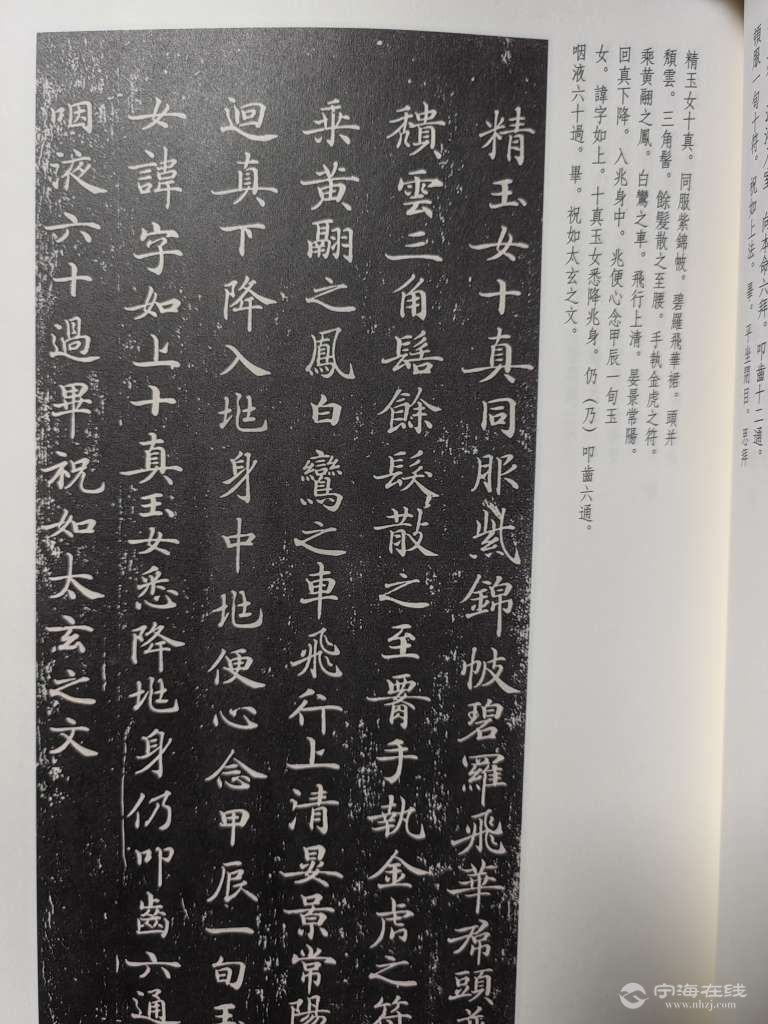 入室。向本命六拜。叩齒十二通。
服一旬十符。祝如上法。畢。平坐閉目。思拜
精玉女十真。同服紫錦帔。碧羅飛華裙。頭并
頽雲。三角髻。餘髮散之至腰。手執金虎之符。
乘黄翮之鳳。白鸞之車。飛行上清。晏景常陽。
回真下降。入兆身中。兆便心念甲辰一旬玉
女。諱字如上。十真玉女悉降兆身。仍（乃）叩齒六通。
咽液六十過。畢。祝如太玄之文。
精玉女十真同服紫錦帔碧羅飛華帬頭並
穨雲三角髻餘髮散之至腰手執金虎之符
乘黄翮之鳳白鸞之車飛行上清晏景常陽
迴真下降入兆身中兆便心念甲辰一旬玉
女諱字如上十真玉女悉降兆身仍叩齒六通
咽液六十過畢祝如太玄之文
宁海在线
www.nhzj.com